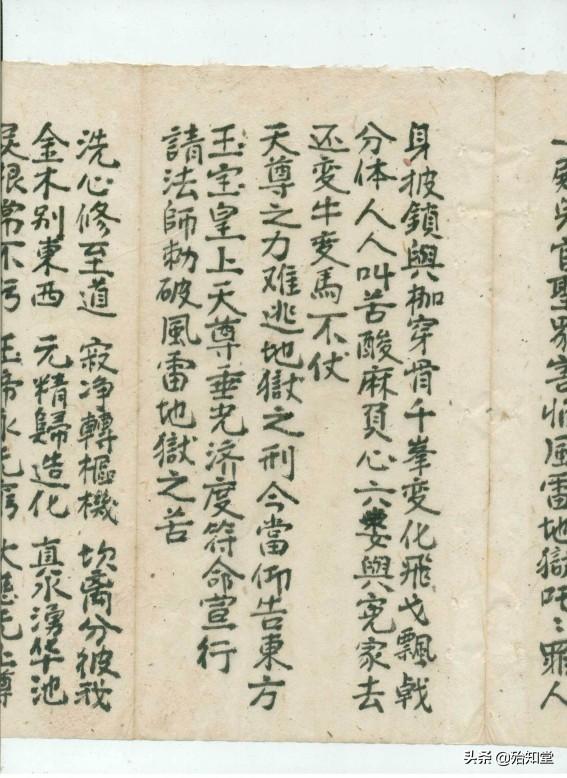 風雷地獄罪人
身披鎖與枷穿骨千峯变化飛戈飄戟
分体人人叫苦酸麻心六與寃家去
还变牛变馬不仗
天尊之力难逃地獄之刑今當仰告東方
玉宝皇上天尊垂光济度符命宣行
請法師勅破風雷地獄之苦
洗心修至道 寂净轉樞機 坎离分彼我
金木别東西 元精歸造化 真水湧华池
根常不亏
头条 @殆知堂